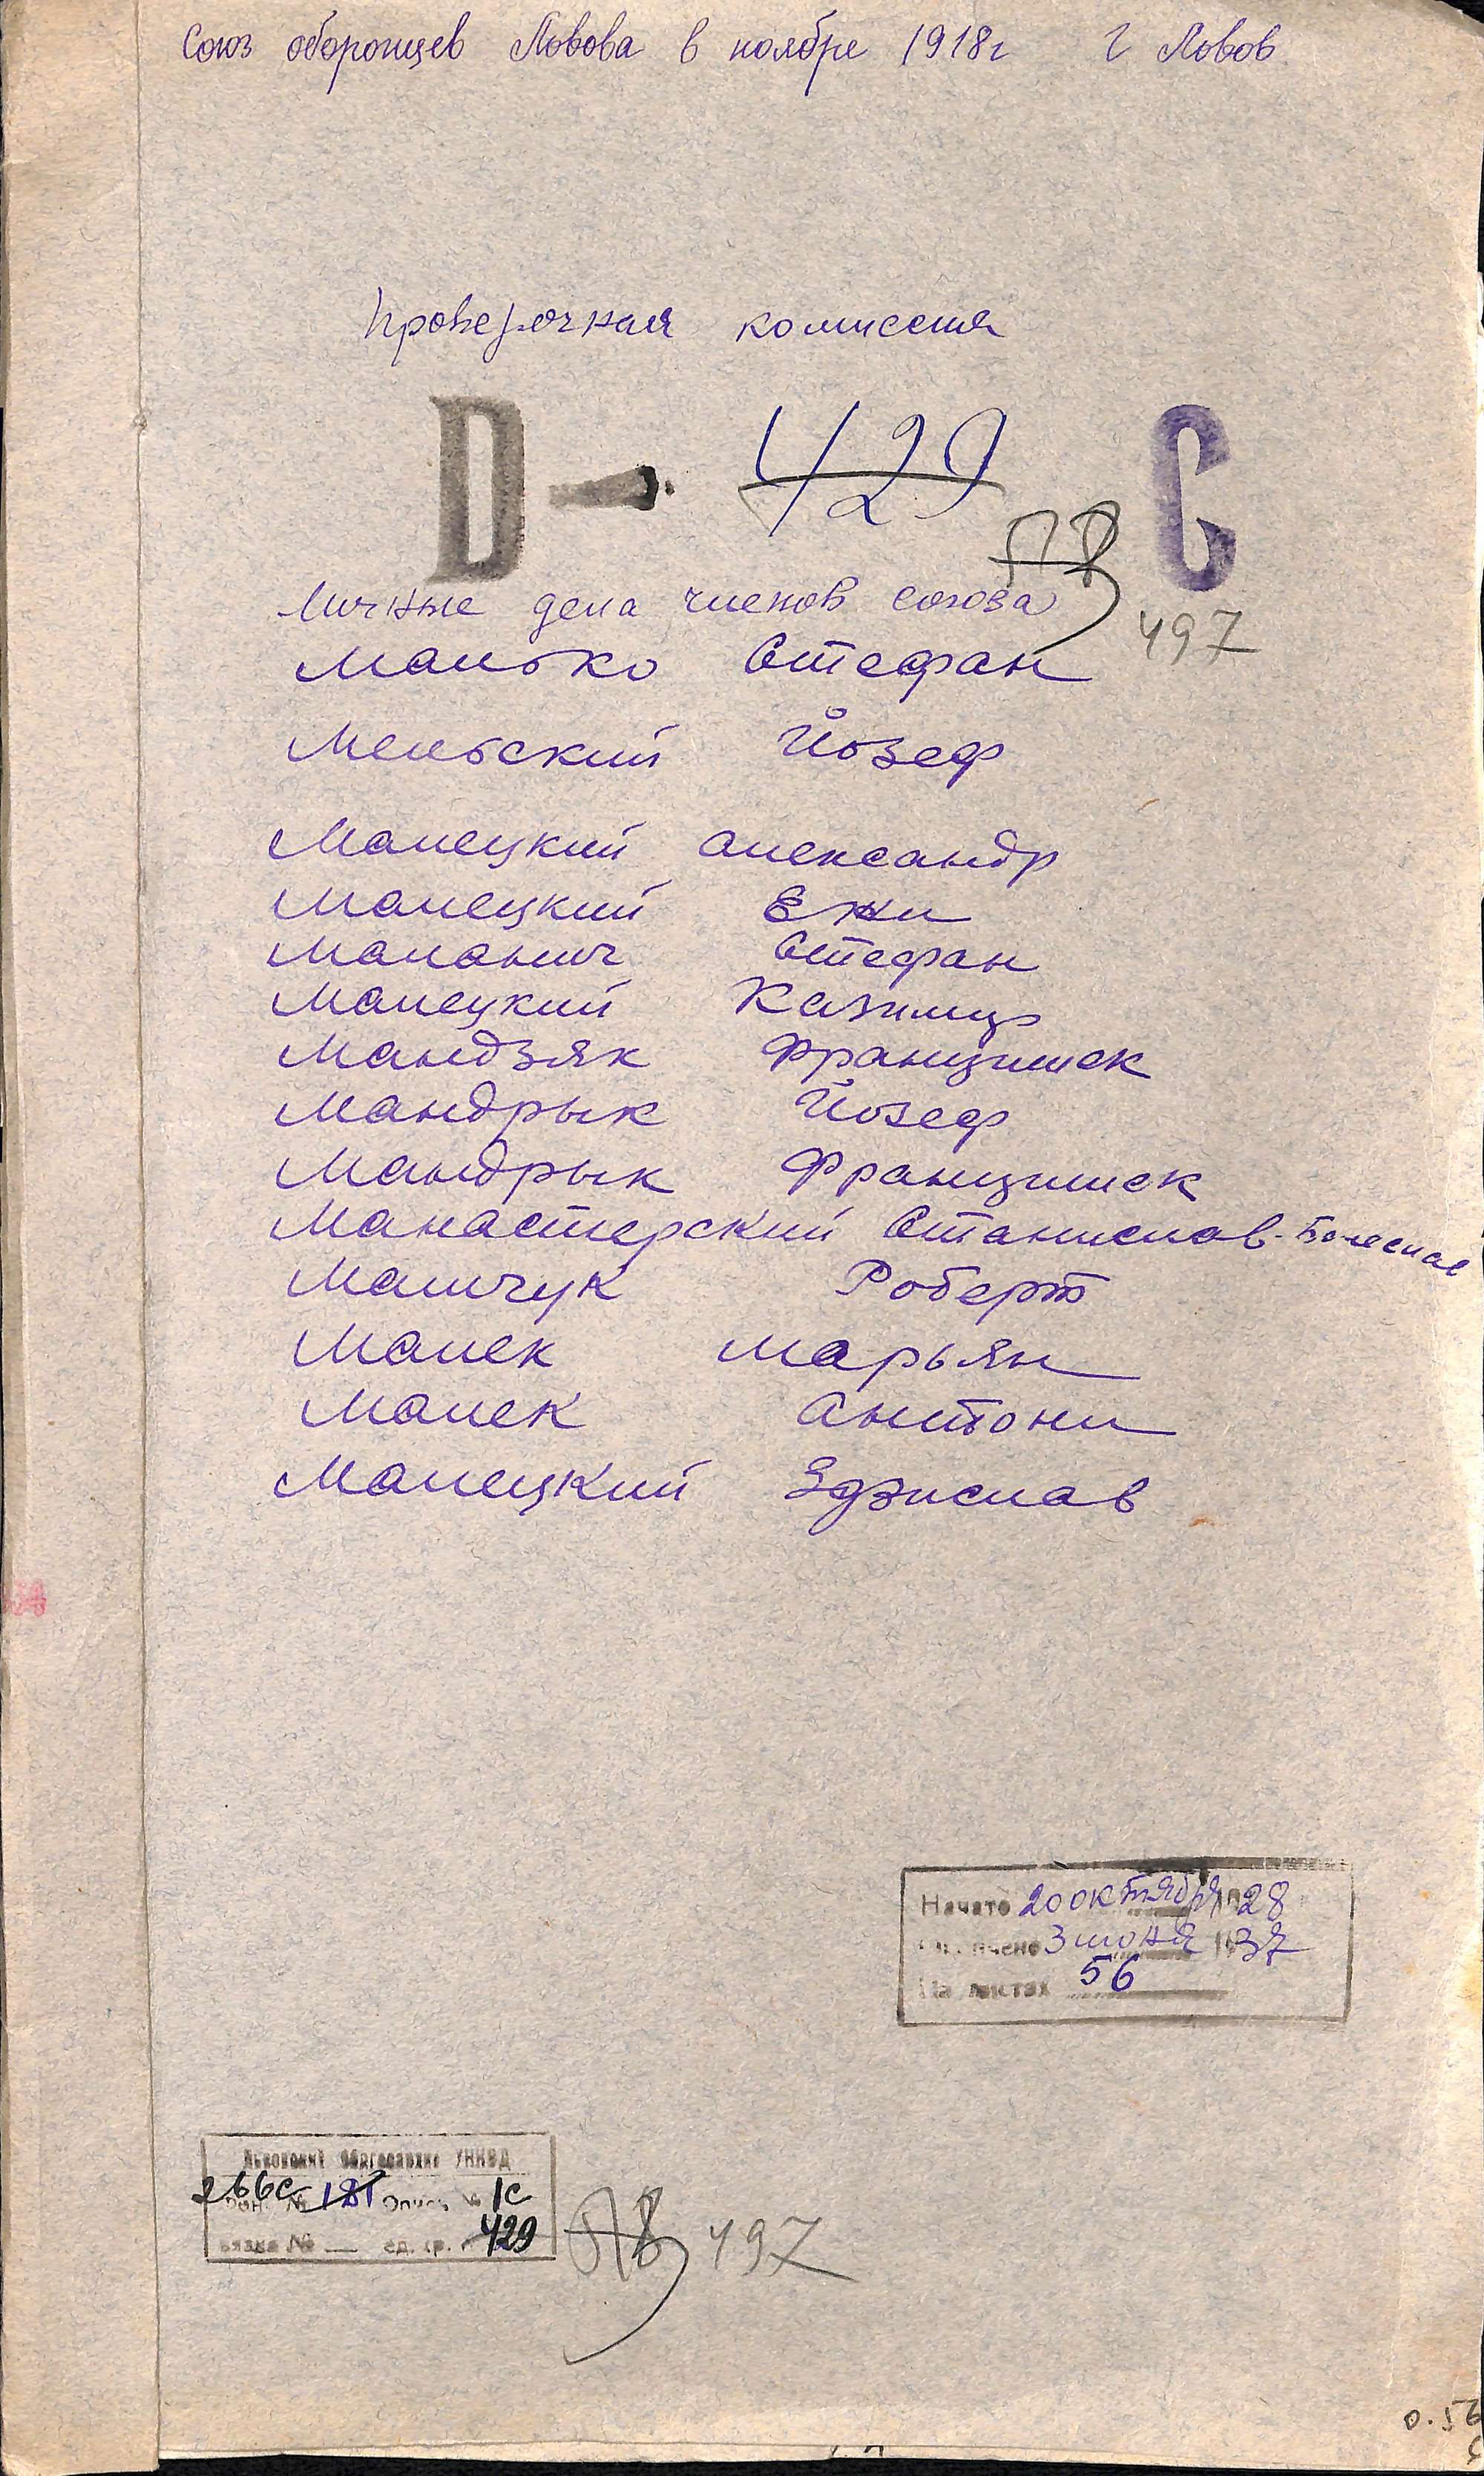 Союз оборонцев Львова в ноябре 1918г г Львов
Проверочная комиссия
D - 429 С
497
Личные дела членов союза
Малько Стефан
Мельский Йозеф
Малецкий Александр
Малецкий Ежи
Маланич Стефан
Малецкий Казимир
Мандзяк Францишек
Мандрык Йозеф
Мандрык Францишек
Манастерский Станислав-Болеслав
Мамчук Роберт
Малек Марьян
Малек Антони
Малецкий Здзислав
Начато 20 октября 1928
Окончено 3 июня 1937
На листах 56
Львовский Облгосархив УНКВД
266с Фонд № 181 Опись № 1с
Связка № — ед. хр. 429
497
0.56